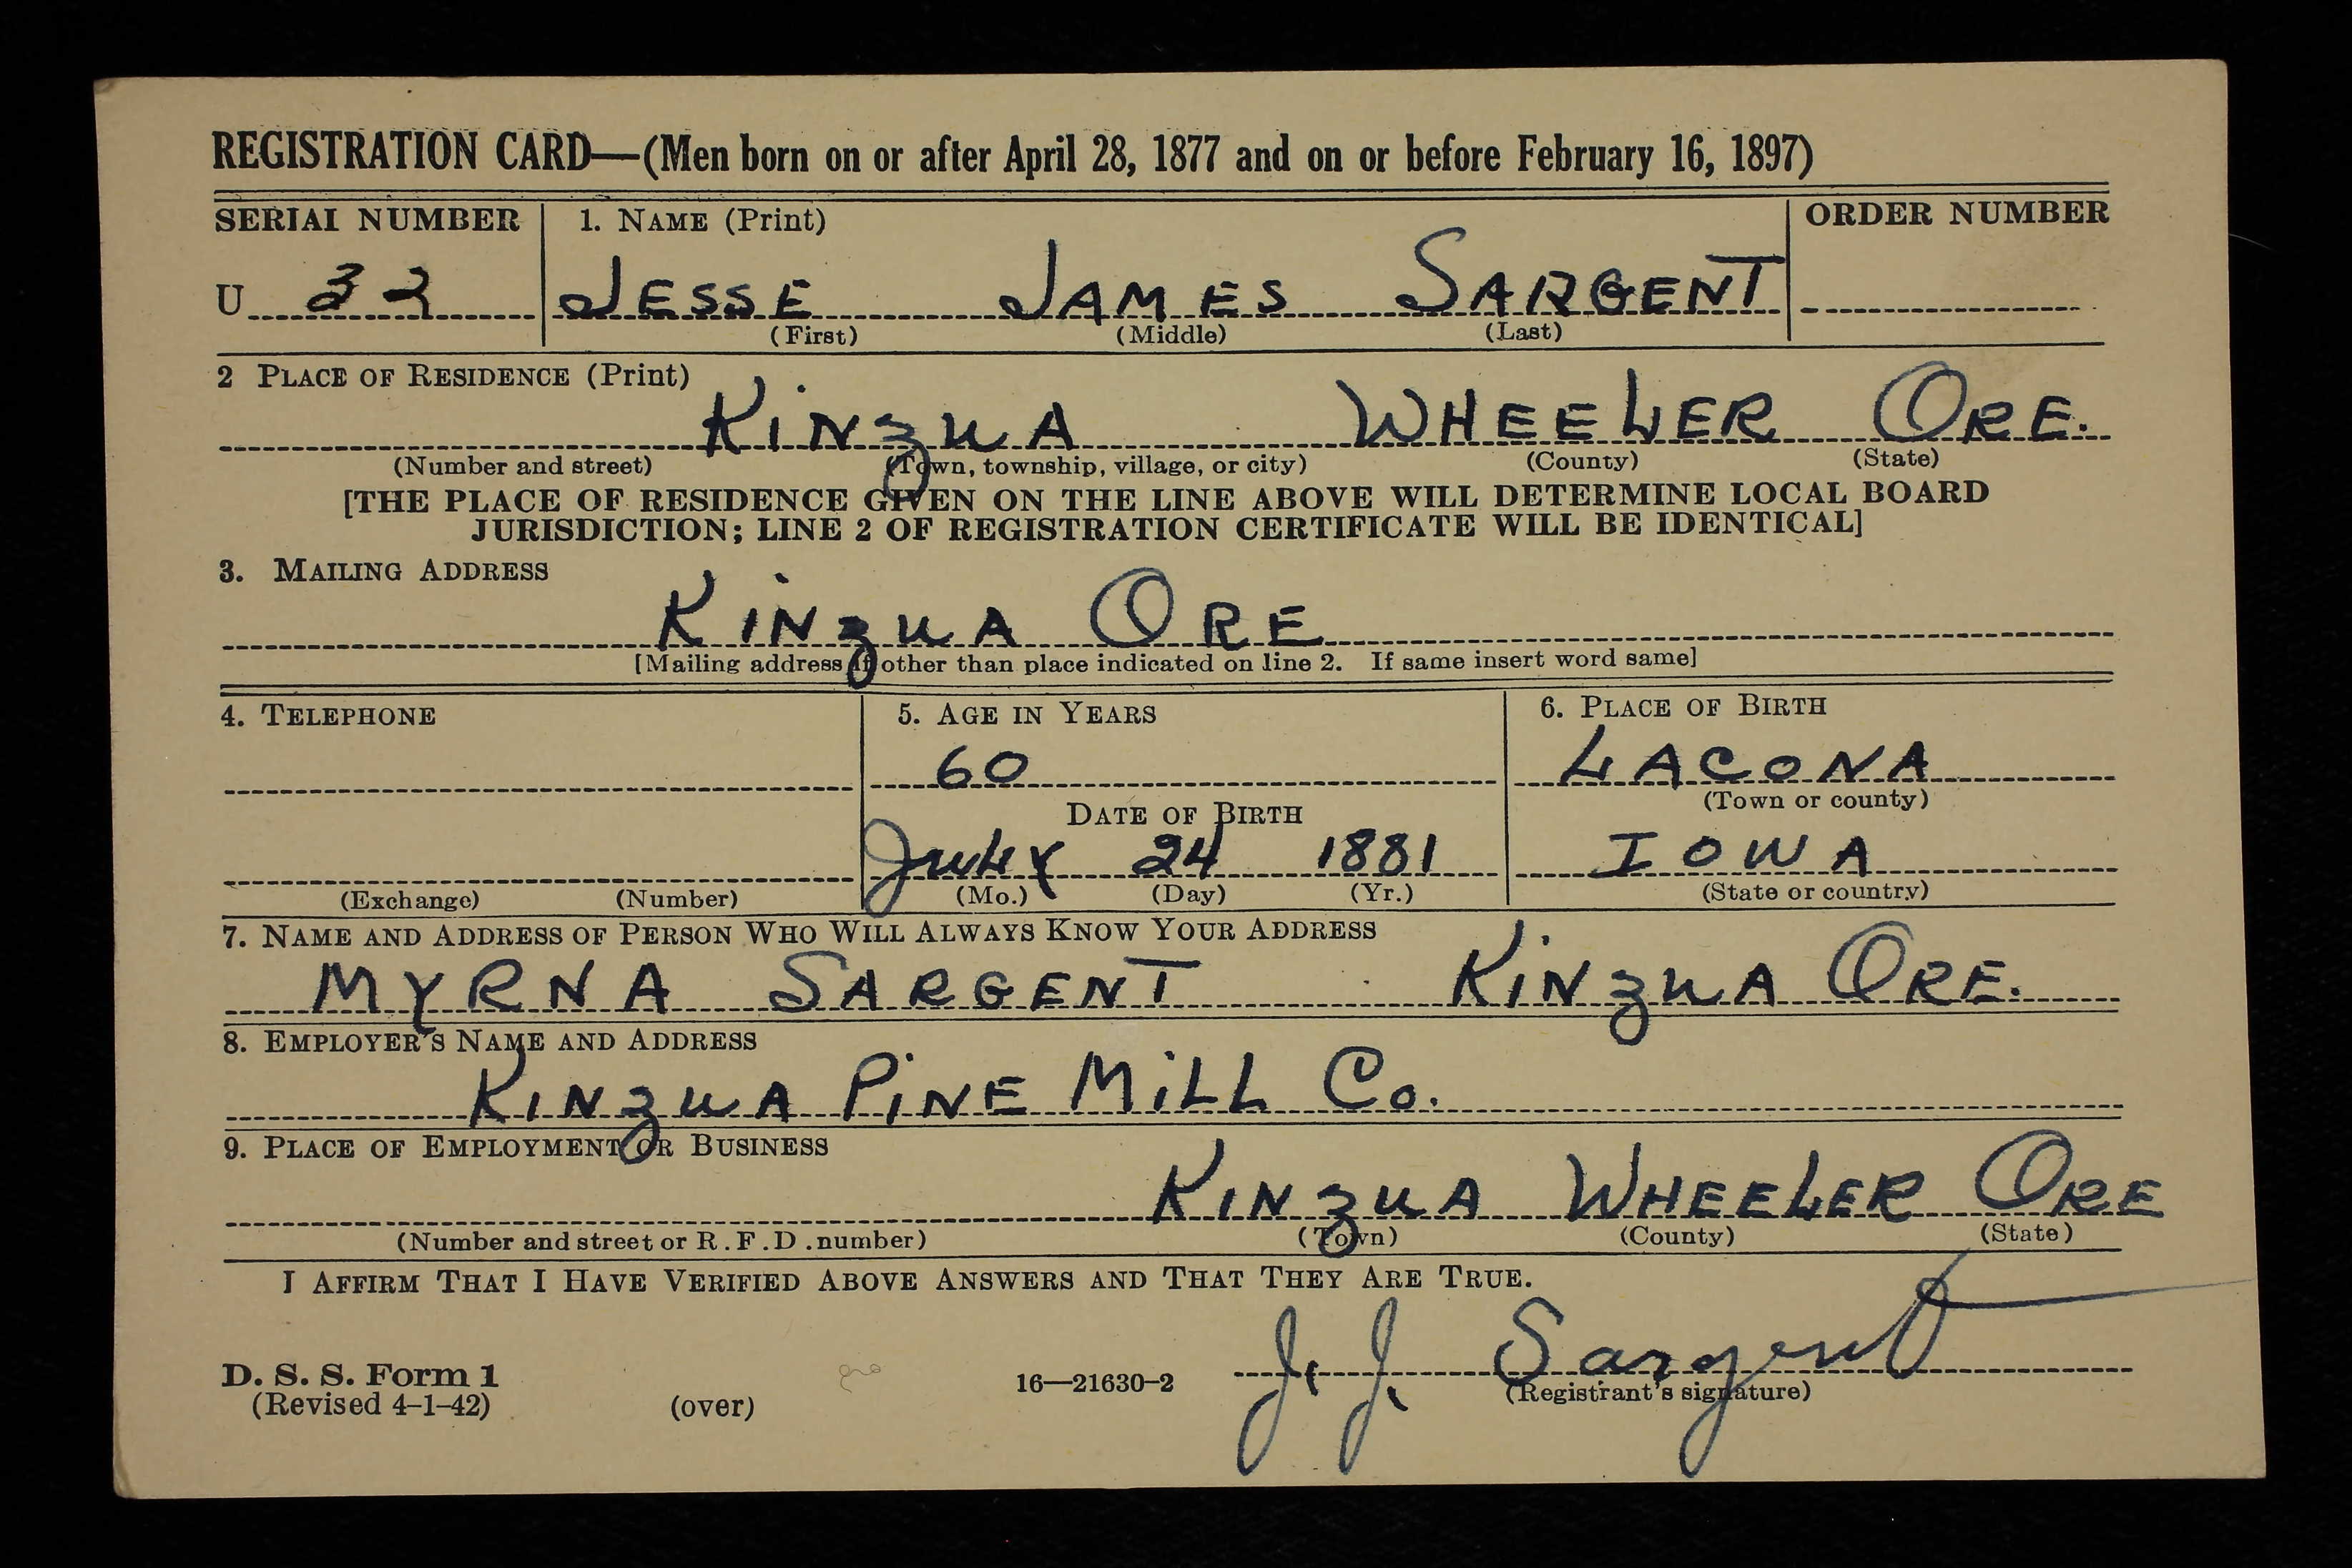 REGISTRATION CARD—(Men born on or after April 28, 1877 and on or before February 16, 1897)
SERIAL NUMBER 1. NAME (Print) ORDER NUMBER
U 32 JESSE JAMES SARGENT
(First) (Middle) (Last)
2 PLACE OF RESIDENCE (Print)
KiNzUA WHEELER ORE.
(Number and street) (Town, township, village, or city) (County) (State)
[THE PLACE OF RESIDENCE GIVEN ON THE LINE ABOVE WILL DETERMINE LOCAL BOARD
JURISDICTION; LINE 2 OF REGISTRATION CERTIFICATE WILL BE IDENTICAL]
3. MAILING ADDRESS
KiNzUA ORE
[Mailing address if other than place indicated on line 2. If same insert word same]
4. TELEPHONE 5. AGE IN YEARS 6. PLACE OF BIRTH
60 LACONA
DATE OF BIRTH (Town or county)
July 24 1881 IOWA
(Exchange) (Number) (Mo.) (Day) (Yr.) (State or country)
7. NAME AND ADDRESS OF PERSON WHO WILL ALWAYS KNOW YOUR ADDRESS
MYRNA SARGENT KiNzUA ORE.
8. EMPLOYER'S NAME AND ADDRESS
KINzUA PiNE MiLL Co.
9. PLACE OF EMPLOYMENT OR BUSINESS
KINzUA WHEELER ORE
(Number and street or R.F.D. number) (Town) (County) (State)
I AFFIRM THAT I HAVE VERIFIED ABOVE ANSWERS AND THAT THEY ARE TRUE.
J. J. Sargent
D. S. S. Form 1 16—21630-2 (Registrant's signature)
(Revised 4-1-42) (over)